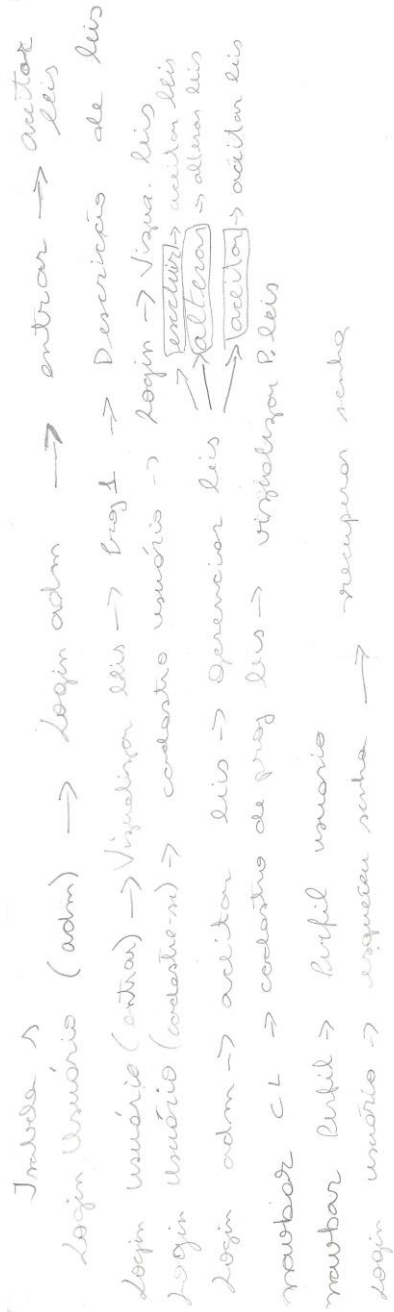 Isabela s
Login Usuário (adm) → Login adm → entrar → aceitar leis
Login usuário (entrar) → Vizualizar leis → Proj 1 → Descrição de leis
Login usuário (cadastre-se) → cadastro usuário → Login → Vizua. leis
Login adm → aceitar leis → Gerenciar leis
→ excluir → aceitar leis
→ alterar → alterar leis
→ aceitar → aceitar leis
navbar CL → cadastro de proj leis → vizualizar P. leis
navbar Perfil → Perfil usuário
Login usuário → esqueceu senha → recuperar senha